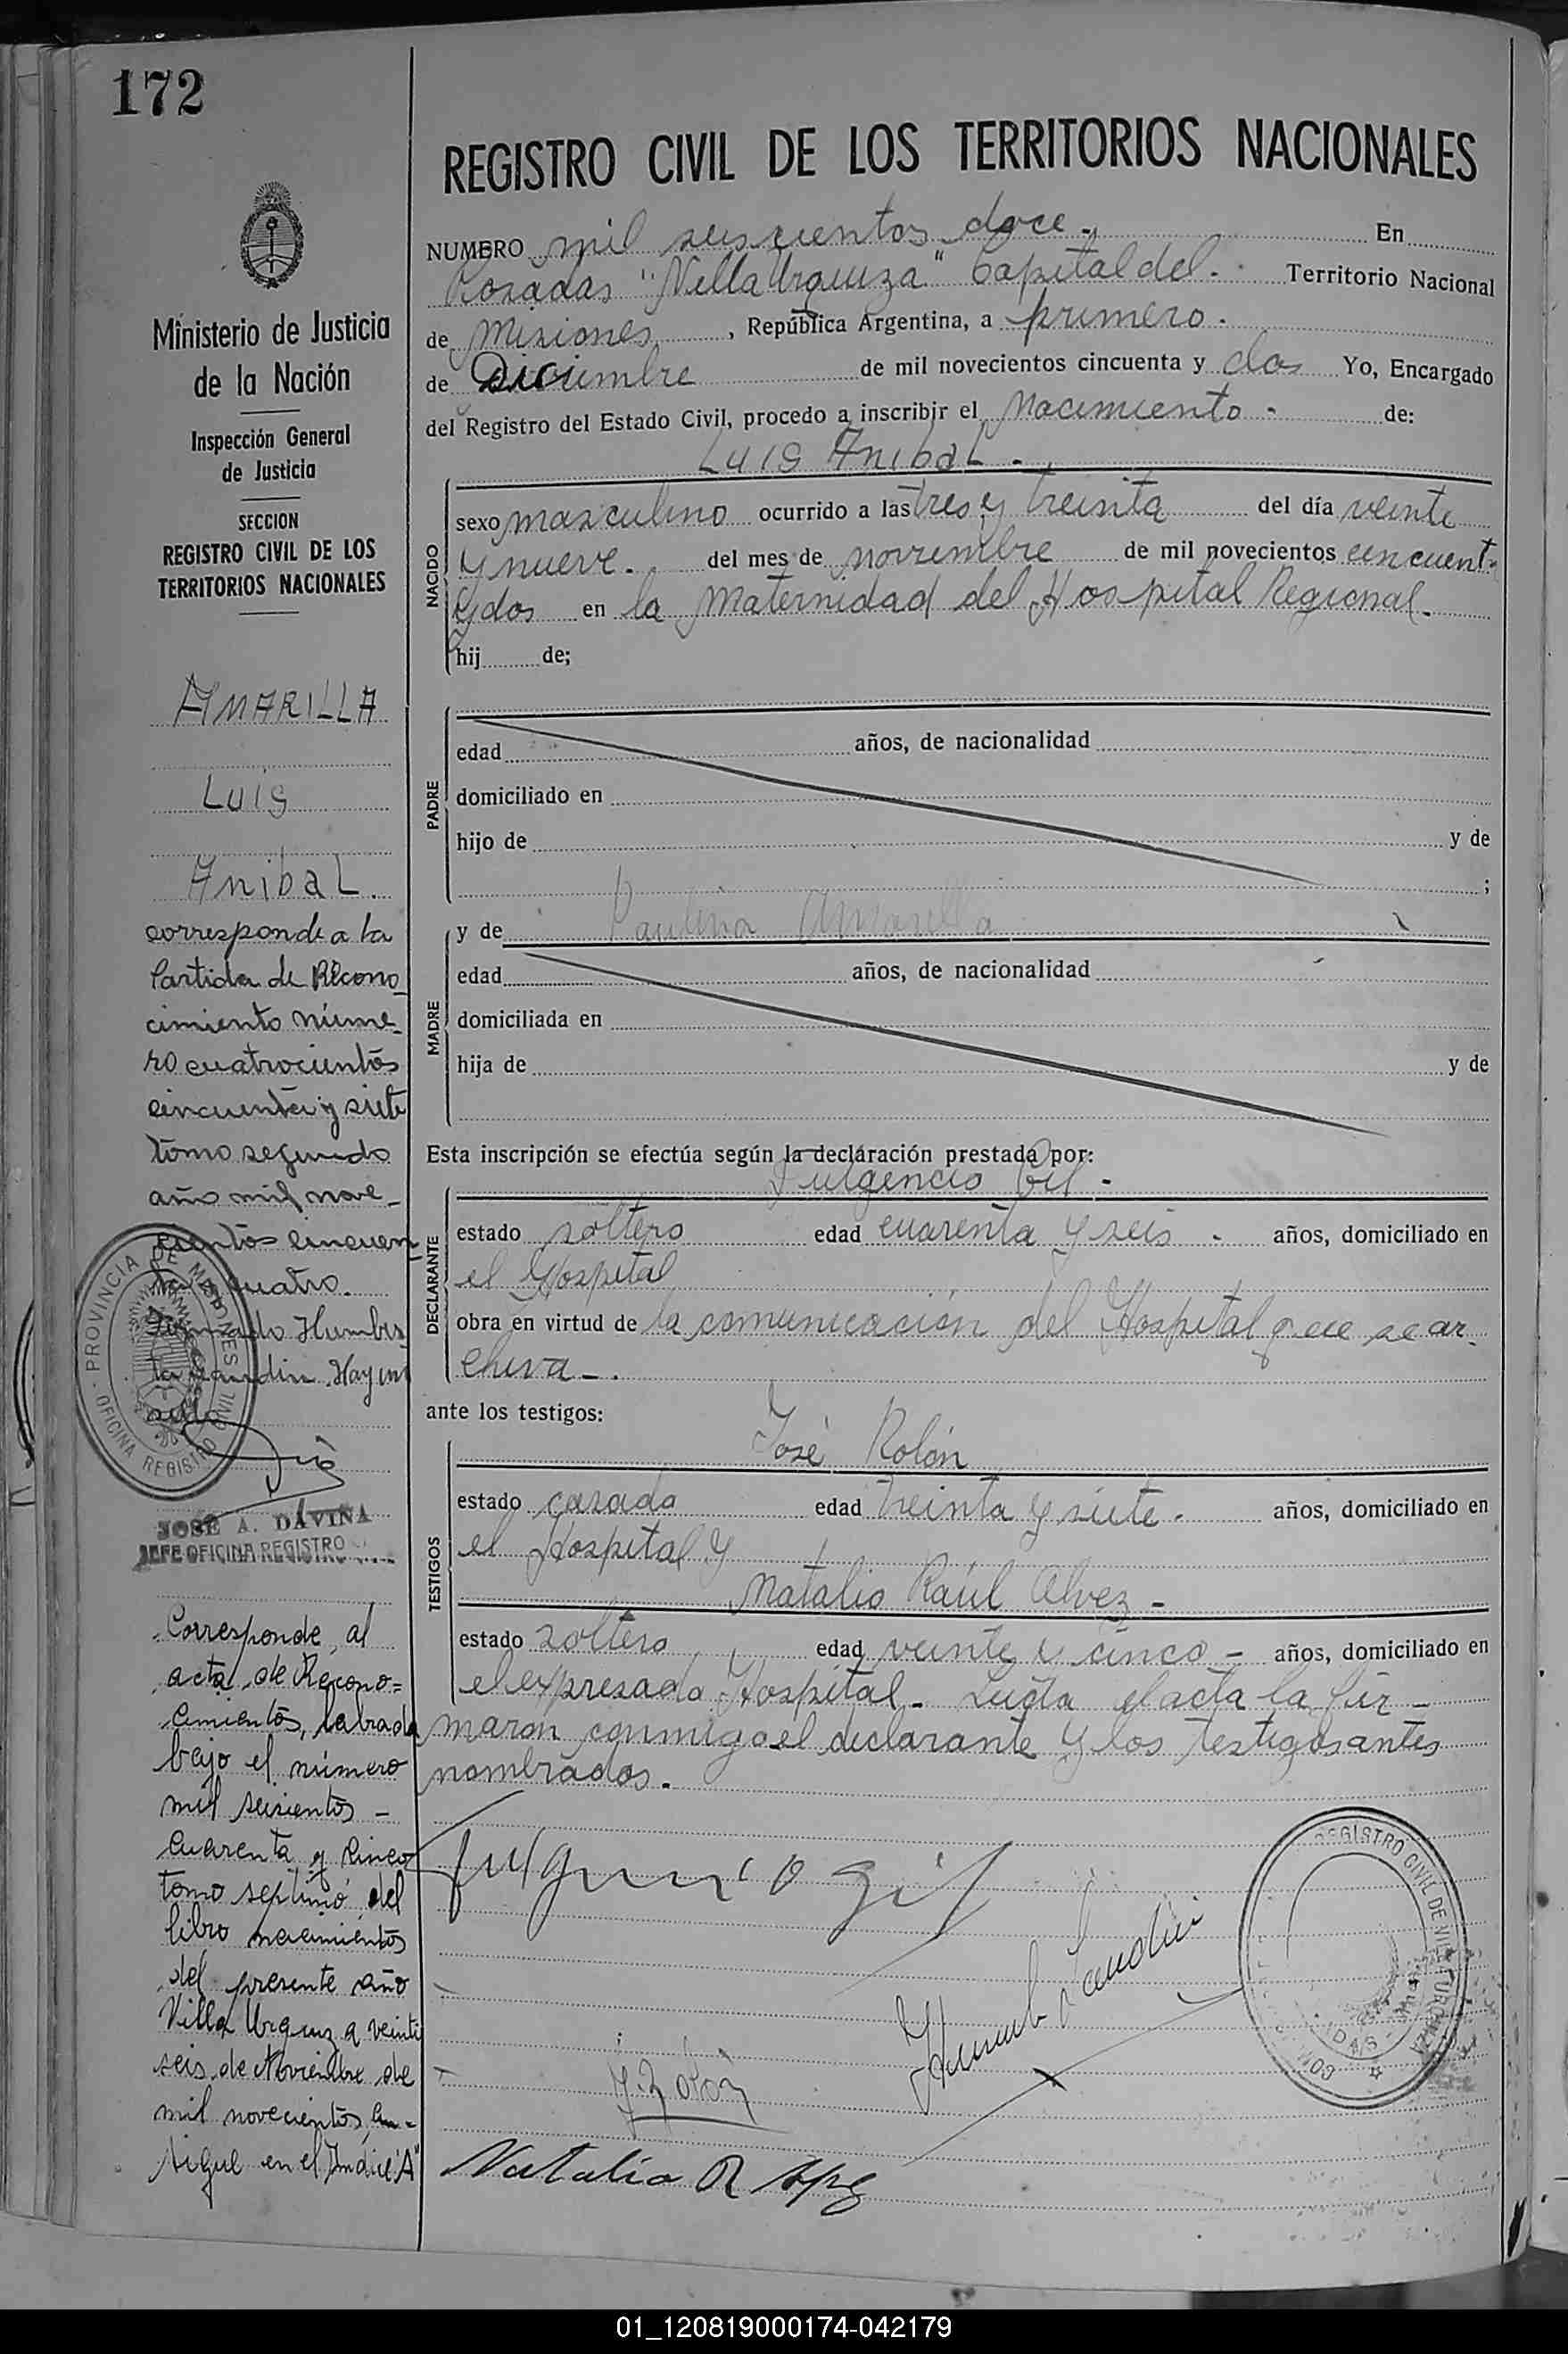 172
Ministerio de Justicia
de la Nación
Inspección General
de Justicia
SECCION
REGISTRO CIVIL DE LOS
TERRITORIOS NACIONALES
AMARILLA
Luis
Anibal.
corresponde a la
Partida de Recono_
cimiento núme_
ro cuatrocientos
cincuenta y siete
tomo segundo
año mil nove_
cientos cincuen
ta cuatro.
Firmado Humber
to Gandin. Hay un
sello
PROVINCIA DE MISIONES
OFICINA REGISTRO CIVIL
JOSÉ A. DAVIÑA
JEFE OFICINA REGISTRO
Corresponde, al
acta, de Recono=
cimientos, labrada
bajo el número
mil seiscientos -
cuarenta y cinco
tomo septimo del
libro nacimientos
del presente año
Villa Urquiz a veinti
seis de Noviembre de
mil novecientos,
sigue en el Indice "A"
REGISTRO CIVIL DE LOS TERRITORIOS NACIONALES
NUMERO mil seiscientos doce. En
Posadas "Villa Urquiza" Capital del. Territorio Nacional
de Misiones, República Argentina, a primero.
de Diciembre de mil novecientos cincuenta y dos Yo, Encargado
del Registro del Estado Civil, procedo a inscribir el Nacimiento - de:
Luis Anibal.
NACIDO
sexo masculino ocurrido a las tres y treinta del día veinte
y nueve. del mes de noviembre de mil novecientos cincuenta
y dos en la Maternidad del Hospital Regional.
hij de;
PADRE
edad años, de nacionalidad
domiciliado en
hijo de y de
;
MADRE
y de Paulina Amarilla
edad años, de nacionalidad
domiciliada en
hija de y de
Esta inscripción se efectúa según la declaración prestada por:
Fulgencio Gil.
DECLARANTE
estado soltero edad cuarenta y seis. años, domiciliado en
el Hospital
obra en virtud de la comunicación del Hospital que se ar_
chiva_.
ante los testigos:
José Rolón
TESTIGOS
estado casado edad treinta y siete. años, domiciliado en
el Hospital y
Natalio Raúl Alvez -
estado soltero edad veinte y cinco - años, domiciliado en
el expresado Hospital. Leída el acta la fir_
maron conmigo el declarante y los testigos antes
nombrados.
fulgencio gil
REGISTRO CIVIL DE VILLA URQUIZA
J. Rolón
Natalio R
01_120819000174-042179